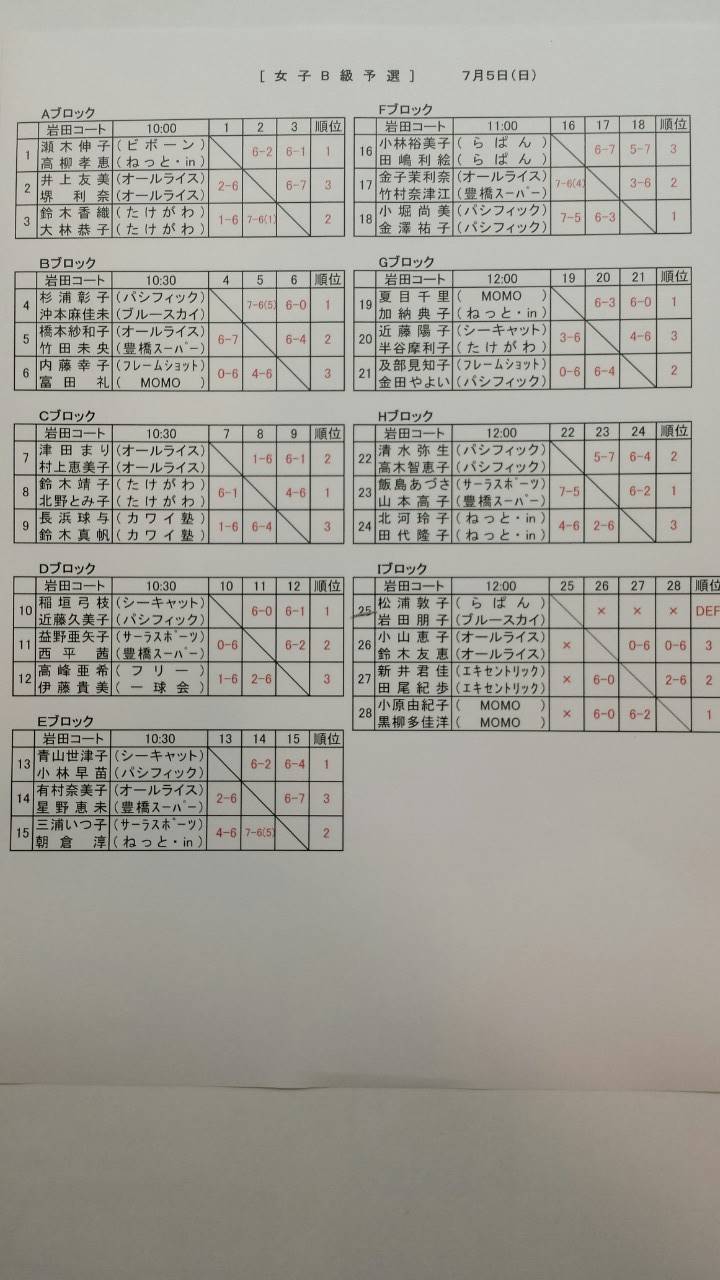 [ 女 子 B 級 予 選 ] 7月5日(日)
Aブロック
岩田コート 10:00 1 2 3 順位
1 瀬木伸子 (ビボーン) 6-2 6-1 1
高柳孝恵 (ねっと・in)
2 井上友美 (オールライス) 2-6 6-7 3
堺 利奈 (オールライス)
3 鈴木香織 (たけがわ) 1-6 7-6(1) 2
大林恭子 (たけがわ)
Bブロック
岩田コート 10:30 4 5 6 順位
4 杉浦彰子 (パシフィック) 7-6(5) 6-0 1
沖本麻佳未 (ブルースカイ)
5 橋本紗和子 (オールライス) 6-7 6-4 2
竹田未央 (豊橋スーパー)
6 内藤幸子 (フレームショット) 0-6 4-6 3
富田 礼 (MOMO)
Cブロック
岩田コート 10:30 7 8 9 順位
7 津田まり (オールライス) 1-6 6-1 2
村上恵美子 (オールライス)
8 鈴木靖子 (たけがわ) 6-1 4-6 1
北野とみ子 (たけがわ)
9 長浜球与 (カワイ塾) 1-6 6-4 3
鈴木真帆 (カワイ塾)
Dブロック
岩田コート 10:30 10 11 12 順位
10 稲垣弓枝 (シーキャット) 6-0 6-1 1
近藤久美子 (パシフィック)
11 益野亜矢子 (サーラスポーツ) 0-6 6-2 2
西平 茜 (豊橋スーパー)
12 高峰亜希 (フリー) 1-6 2-6 3
伊藤貴美 (一球会)
Eブロック
岩田コート 10:30 13 14 15 順位
13 青山世津子 (シーキャット) 6-2 6-4 1
小林早苗 (パシフィック)
14 有村奈美子 (オールライス) 2-6 6-7 3
星野恵未 (豊橋スーパー)
15 三浦いつ子 (サーラスポーツ) 4-6 7-6(5) 2
朝倉 淳 (ねっと・in)
Fブロック
岩田コート 11:00 16 17 18 順位
16 小林裕美子 (らぱん) 6-7 5-7 3
田嶋利絵 (らぱん)
17 金子茉利奈 (オールライス) 7-6(4) 3-6 2
竹村奈津江 (豊橋スーパー)
18 小堀尚美 (パシフィック) 7-5 6-3 1
金澤祐子 (パシフィック)
Gブロック
岩田コート 12:00 19 20 21 順位
19 夏目千里 (MOMO) 6-3 6-0 1
加納典子 (ねっと・in)
20 近藤陽子 (シーキャット) 3-6 4-6 3
半谷摩利子 (たけがわ)
21 及部見知子 (フレームショット) 0-6 6-4 2
金田やよい (パシフィック)
Hブロック
岩田コート 12:00 22 23 24 順位
22 清水弥生 (パシフィック) 5-7 6-4 2
高木智恵子 (パシフィック)
23 飯島あづさ (サーラスポーツ) 7-5 6-2 1
山本高子 (豊橋スーパー)
24 北河玲子 (ねっと・in) 4-6 2-6 3
田代隆子 (ねっと・in)
Iブロック
岩田コート 12:00 25 26 27 28 順位
25 松浦敦子 (らぱん) × × × DEF
岩田朋子 (ブルースカイ)
26 小山恵子 (オールライス) × 0-6 0-6 3
鈴木友恵 (オールライス)
27 新井君佳 (エキセントリック) × 6-0 2-6 2
田尾紀歩 (エキセントリック)
28 小原由紀子 (MOMO) × 6-0 6-2 1
黒柳多佳洋 (MOMO)